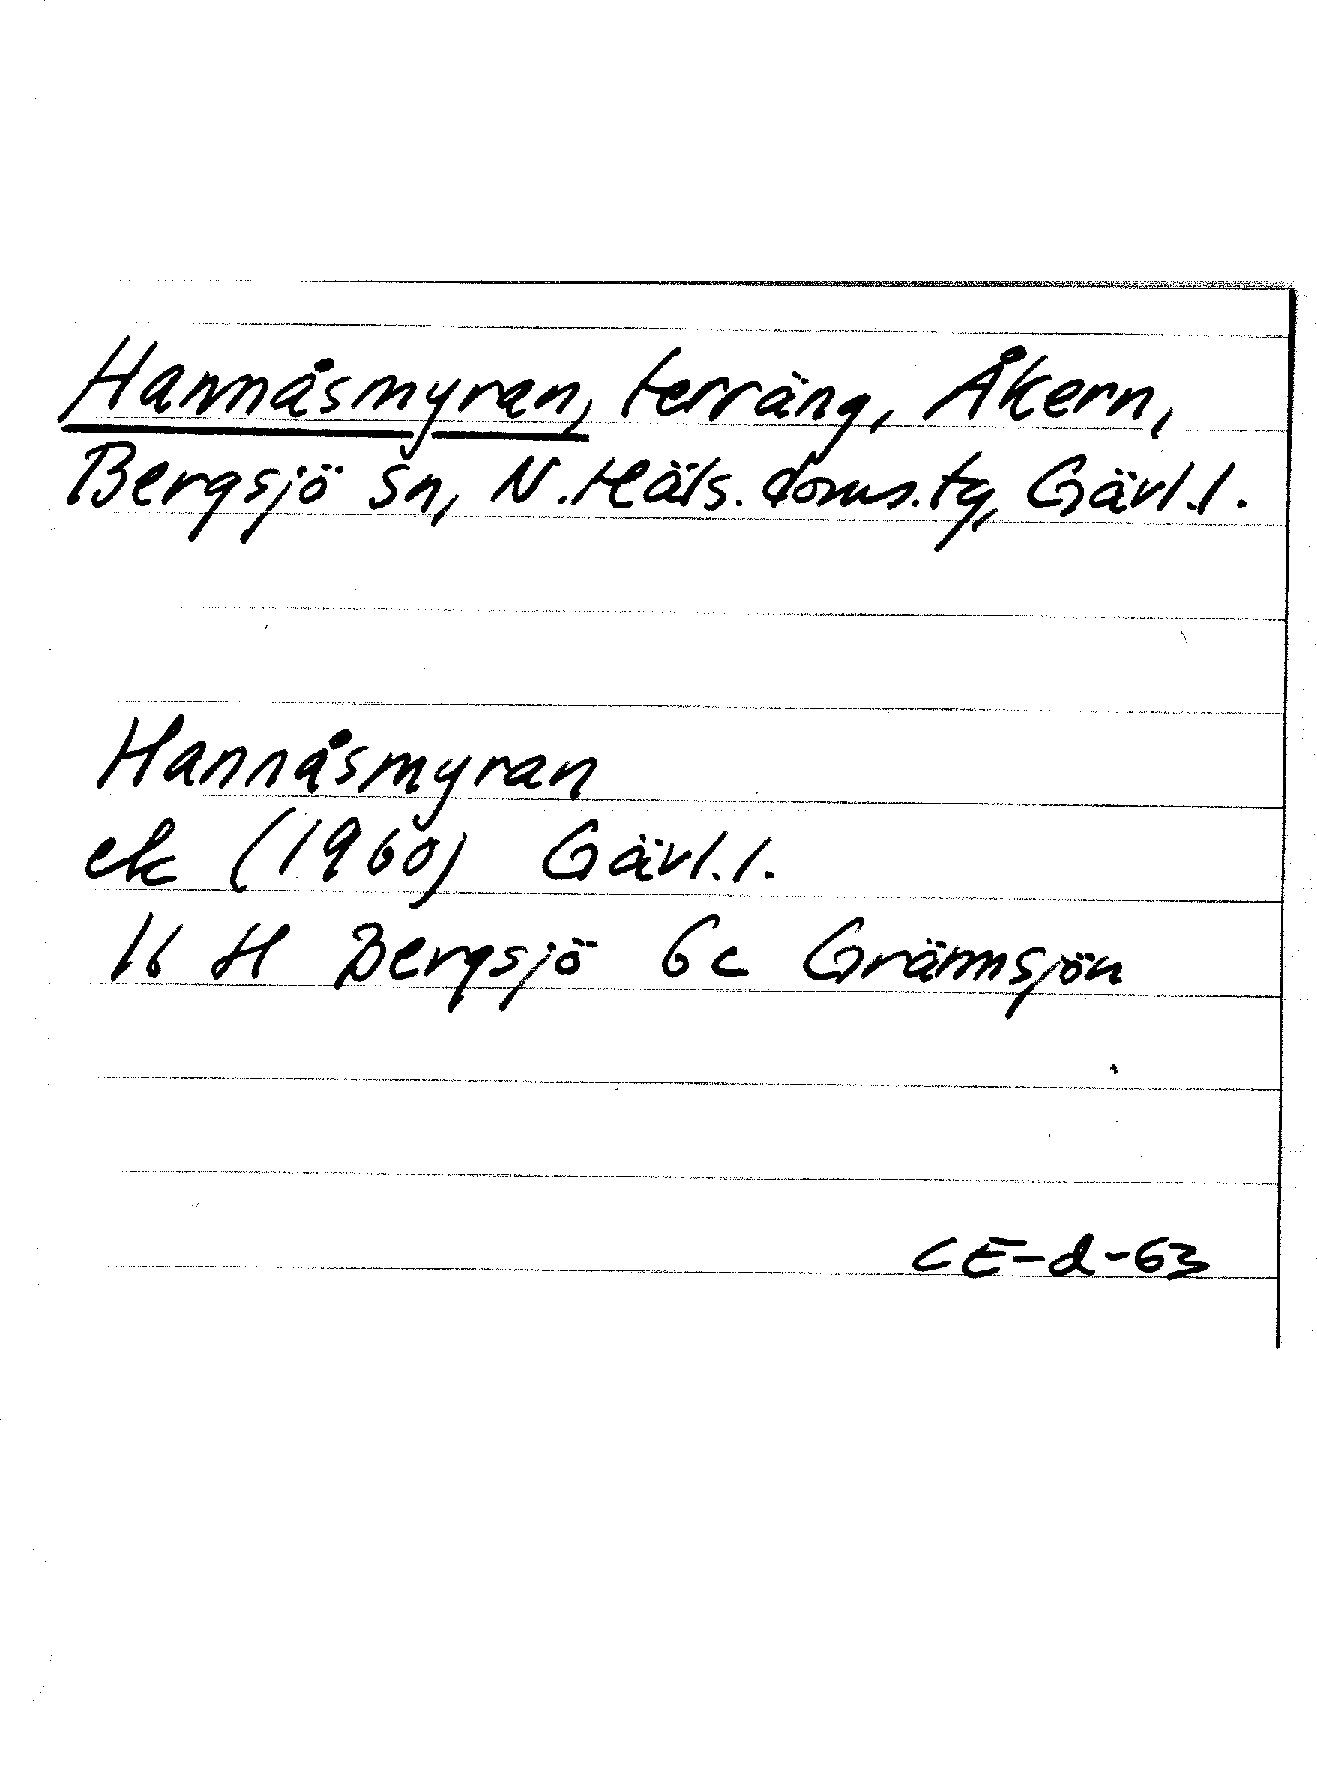 Hannåsmyran, terräng, Åkern,
Bergsjö sn, N. Häls. doms.tg, Gävl.l.
Hannåsmyran
ek (1960) Gävl.l.
16 H Bergsjö 6c Grännsjön
CE-d-63